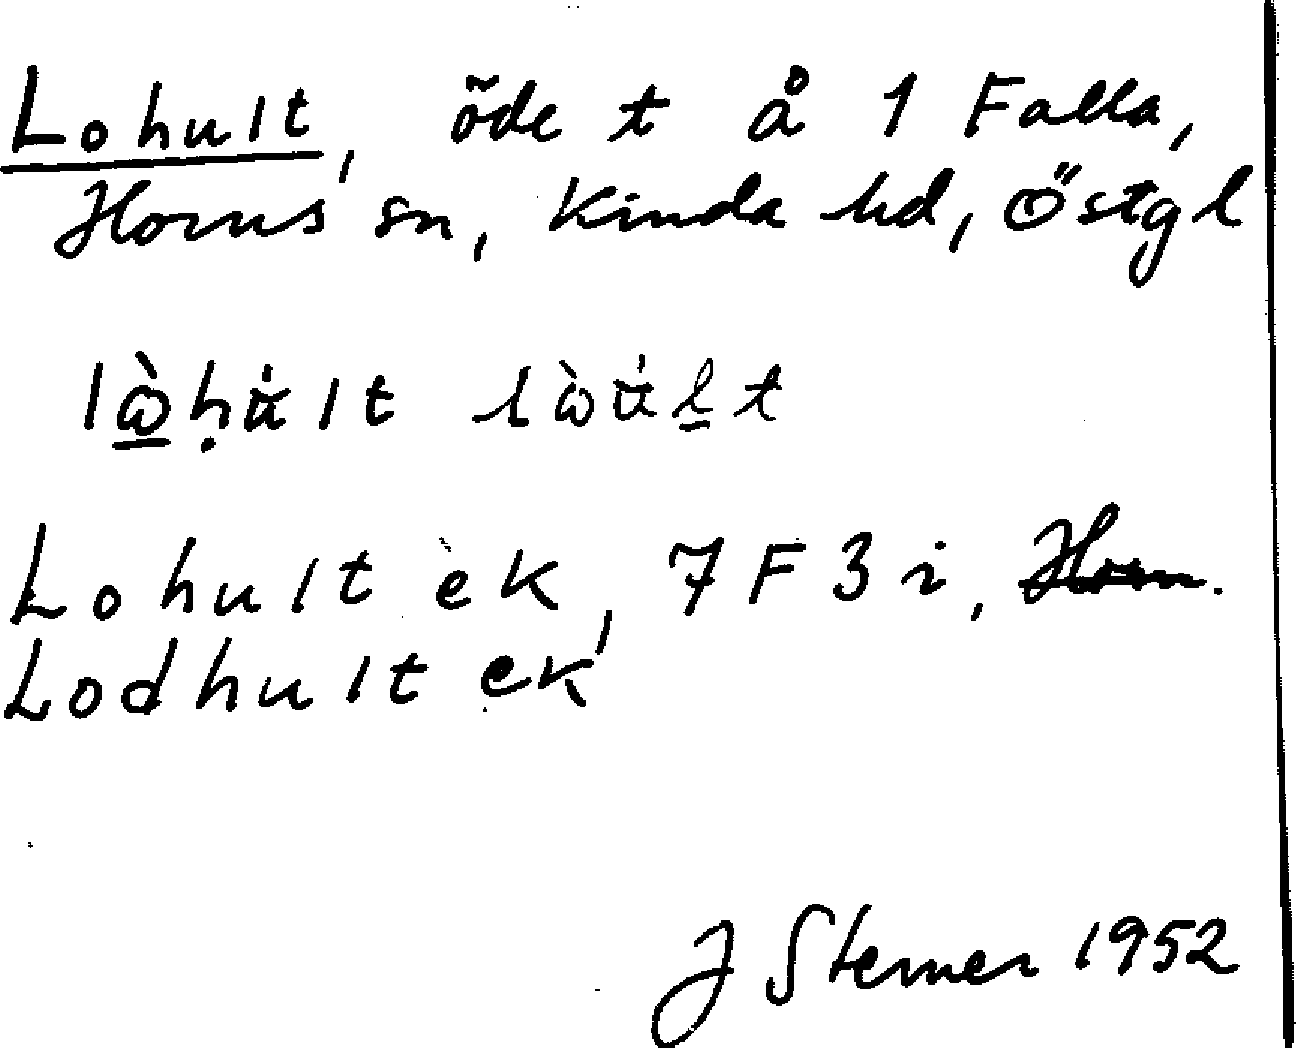 Lohult, öde t å 1 Falla,
Horns sn, Kinda hd, Östgl
Lohult ek, 7 F 3 i, Horn.
Lodhult ek
J Sterner 1952